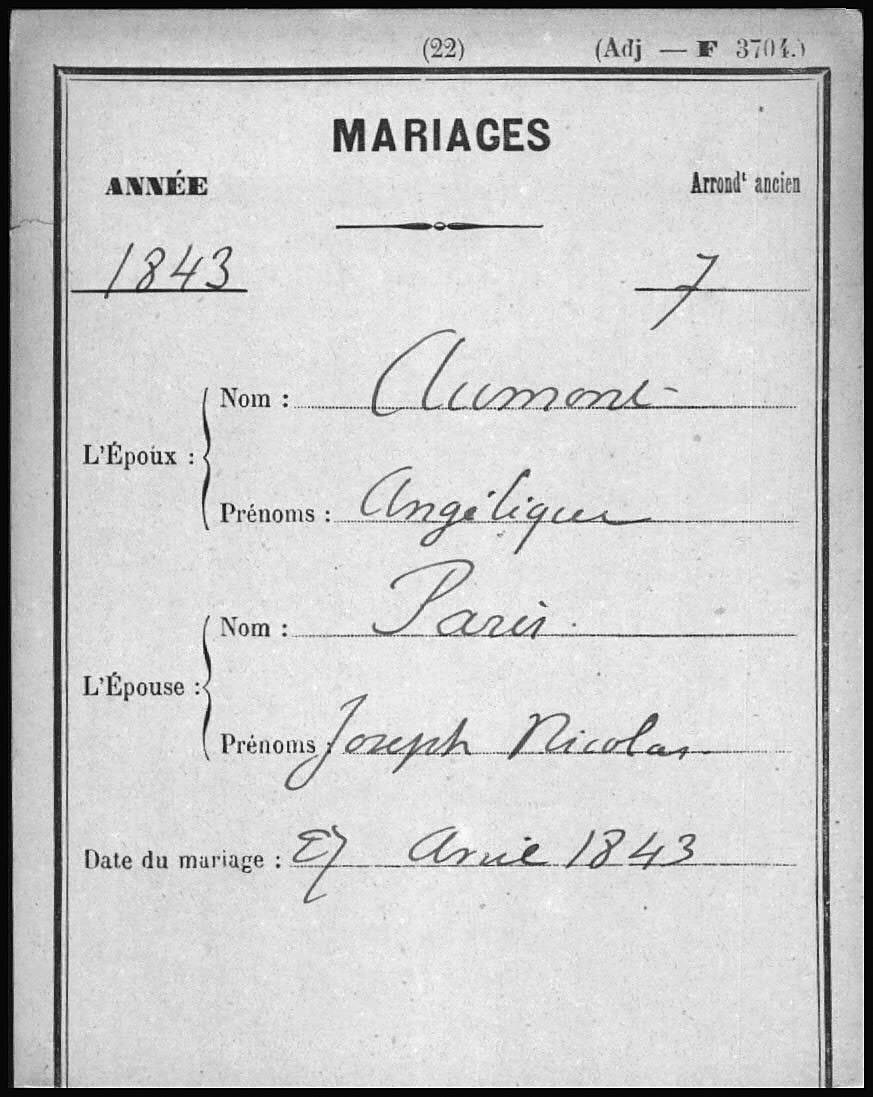 (22) (Adj — F 3704.)
MARIAGES
ANNÉE Arrondt ancien
1843 7
L'Époux :
Nom : Aumont
Prénoms : Angélique
L'Épouse :
Nom : Paris
Prénoms : Joseph Nicolas
Date du mariage : 27 Avril 1843